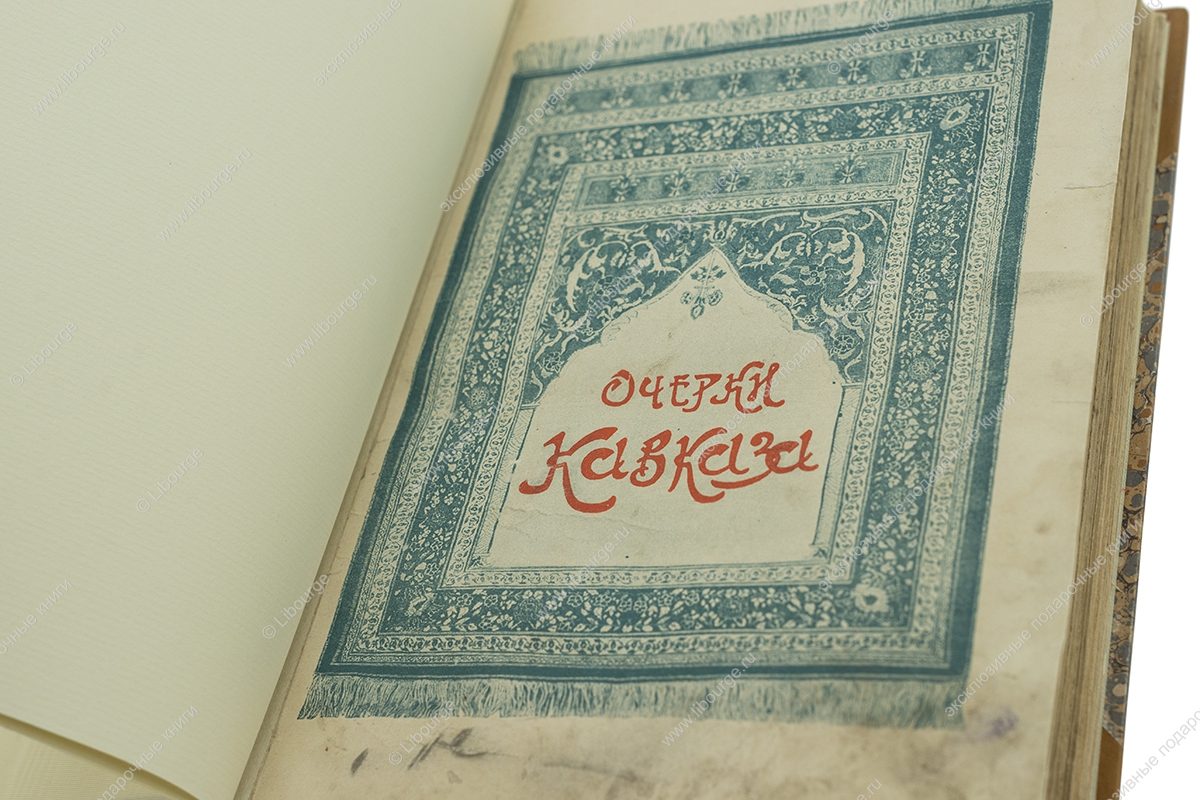 ОЧЕРКИ
КАВКАЗА
www.Libourge.ru
эксклюзивные подарочные книги
© Libourge.ru